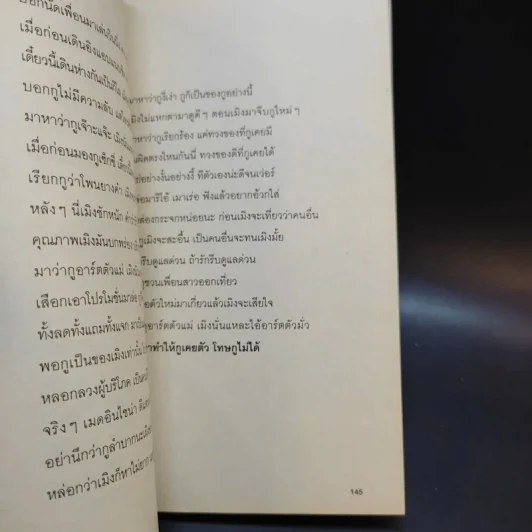 บอกนัดเพื่อนมาเล่น
เมื่อก่อนเดินอิงแอบ
เดี๋ยวนี้เดินห่างกันเป็น
บอกกูไม่มีความลับ
มาหาว่ากูเจ๊าะแจ๊ะ
เมื่อก่อนมองกูเซ็กซี่
เรียกกูว่าโพนยางคำ
หลังๆ นี่เมิงชักหนัก
คุณภาพเมิงมันบกพร่อง
มาว่ากูอาร์ตตัวแม่
เสือกเอาโปรโมชั่นมา
ทั้งลดทั้งแถมทั้งแจก
พอกูเป็นของเมิงเท่านั้น
หลอกลวงผู้บริโภค
จริงๆ เมดอินไชน่า
อย่านึกว่ากูลำบากนะ
หล่อกว่าเมิงก็หาไม่ยาก
มาหาว่ากูงี่เง่า กูก็เป็นของกูอย่างนี้
เมิงไม่แหกตามาดูดีๆ ตอนเมิงมาจีบกูใหม่ๆ
มาหาว่ากูเรียกร้อง แค่ทวงของที่กูเคยมี
ผิดตรงไหนกันนี่ ทวงของดีที่กูเคยได้
อย่างงั้นอย่างงี้ ทีตัวเองน่ะดีจนเว่อร์
มาริโอ้ เมาเร่อ ฟังแล้วอยากอ้วกใส่
ส่องกระจกหน่อยนะ ก่อนเมิงจะเที่ยวว่าคนอื่น
กูเมิงจะสะอื้น เป็นคนอื่นจะทนเมิงมั้ย
รีบดูแลด่วน ถ้ารักรีบดูแลด่วน
ชวนเพื่อนสาวออกเที่ยว
ตัวใหม่มาเกี่ยวแล้วเมิงจะเสียใจ
อาร์ตตัวแม่ เมิงนั่นแหละไอ้อาร์ตตัวมั่ว
ทำให้กูเคยตัว โทษกูไม่ได้
145